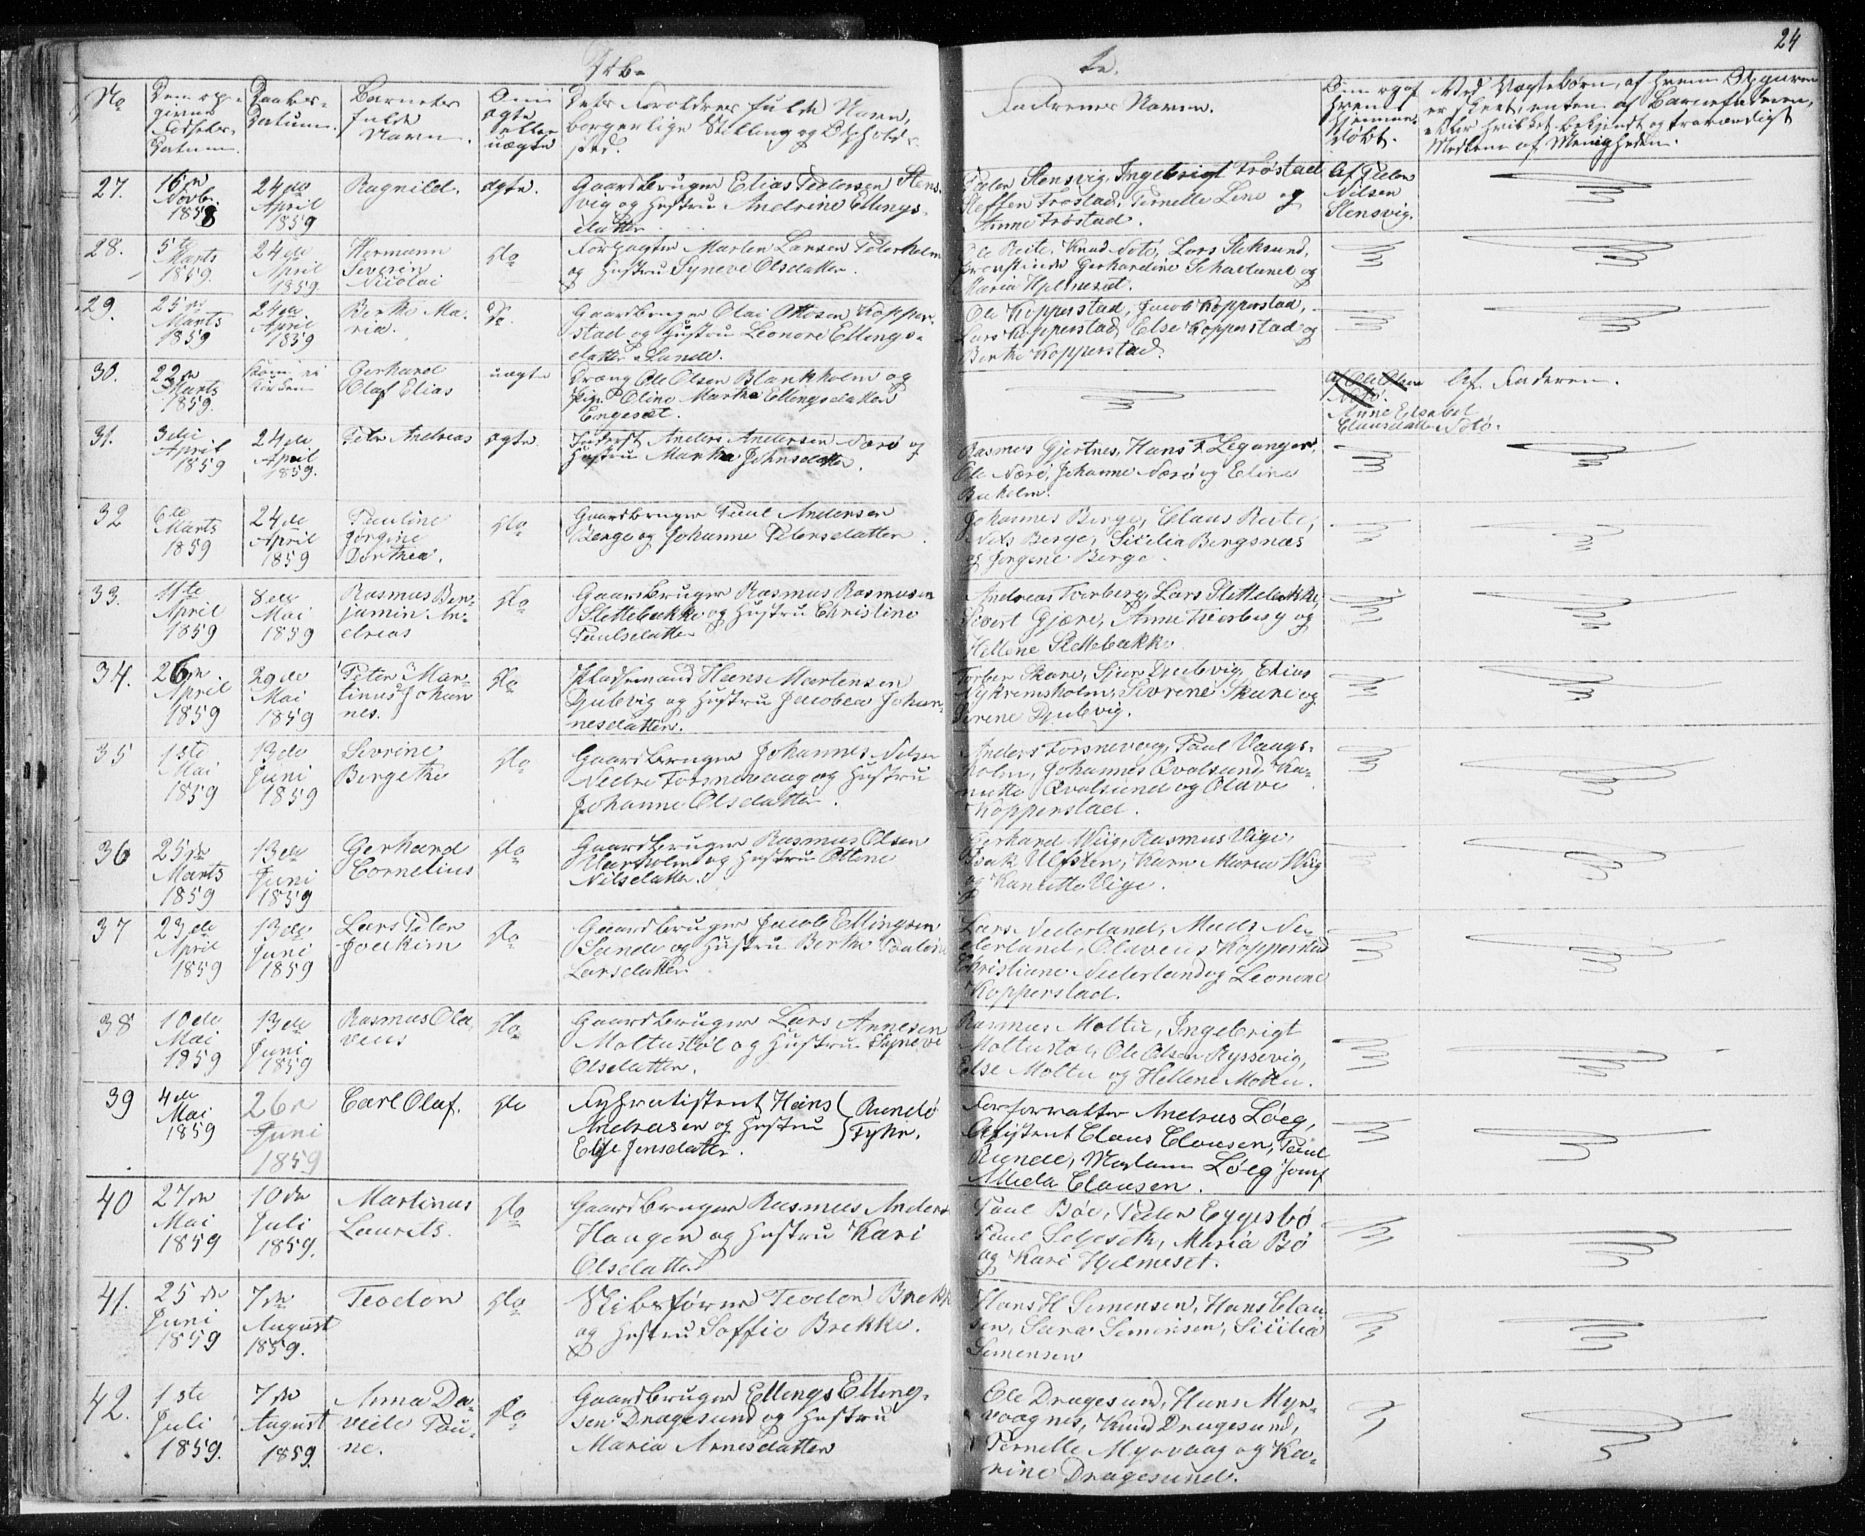 24
Døb- te.
No
Den op-
givne
Fødsels-
Datum.
Daabs-
Datum.
Barnets
fulde
Navn.
Om
ægte
eller
uægte
Dets Forældres fulde Navn,
borgerlige Stilling og Opholds-
sted.
Faddernes Navne.
Om og af
hvem
hjemme-
døbt.
27.
16de
Novbr.
1858
24de
April
1859
Ragnild.
ægte.
Gaardbruger Elias Pedersen Stens-
vig og Hustru Andrine Ellings-
datter
Peder Stensvig, Ingebrigt Frøstad
Steffen Frøstad, Pernelle Line og
Anne Frøstad.
Af Peder
Nilsen
Stensvig.
28.
5te
Marts
1859.
24de
April
1859
Hermann
Severin
Nicolai
do
Forpagter Marten Larsen Pederholm
og Hustru Syneve Olsdatter.
Ole Reite, Knud Notø, Lars Steksund,
Provstinde Gerhardine Schaelund og
Maria Hjelmeset.
29.
25de
Marts
1859
24de
April
1859
Berthe Ma-
ria.
do
Gaardbruger Olai Ottosen Kopper-
stad og Hustru Leonore Ellings-
datter Sande.
Ole Kopperstad, Jacob Kopperstad,
Lars Kopperstad, Else Kopperstad og
Berthe Kopperstad.
30.
22de
Marts
1859.
Kom ei
Kirken
Gerhard
Olaf Elias
uægte
Dræng Ole Olsen Blankholm og
Pige Oline Martha Ellingsdatter
Engeset.
Af Ole Olsen
Notø.
Anne Elisabet
Clausdatter Notø.
Af Faderen.
31.
3die
April
1859
24de
April
1859.
Peter Andreas
ægte.
Inderst Anders Andersen Nærø og
Hustru Martha Johnsdatter.
Rasmus Gjertnes, Hans F Leganger
Ole Nærø, Johanne Nærø og Elina
Buholm.
32
6te
Marts
1859
24de
April
1859
Pauline
Jørgine
Dorthea.
do
Gaardbruger Paul Andersen
Berge og Johanne Petersdatter.
Johannes Berge, Claus Reite,
Nils Berge, Sicilia Bergsnæs
og Jørgene Berge.
33.
11te
April
1859
8de
Mai
1859
Rasmus Ben-
jamin An-
dreas
do
Gaardbruger Rasmus Rasmusen
Slettebakke og Hustru Christine
Paulsdatter
Andreas Tverberg, Lars Slettebakke,
Sivert Gjære, Anne Tverberg og
Hellene Slettebakke
34.
26de
April
1859
29de
Mai
1859
Peter Mar-
tinus Johan-
nes.
do
Pladsmand Hans Martensen
Djubvig og Hustru Jacobea Johan-
nesdatter.
Torber Skare, Sjur Djubvig, Elias
Nykremsholm, Sivrine Skare og
Serine Djubvig.
35
1ste
Mai
1859
13de
Juni
1859
Sivrine
Bergethe
do
Gaardbruger Johannes Nilsen
Nedre Torsnevaag og Hustru
Johanne Olsdatter.
Anders Torsnevaag, Paul Vaags-
holm, Johannes Qvalsund, Ka-
nutte Qvalsund og Olave
Kopperstad.
36
25de
Marts
1859
13de
Juni
1859
Gerhard
Cornelius
do
Gaardbruger Rasmus Olsen
Vaxholm og Hustru Oline
Nilsdatter.
Gerhard Wiig, Rasmus Vige,
Isak Ulfsten, Karn Maria Wiig
og Kanutte Vige.
37
23de
April
1859
13de
Juni
1859
Lars Peter
Joakim
do
Gaardbruger Jacob Ellingsen
Sande og Hustru Berthe Pauline
Larsdatter.
Lars Nederland, Mads Ne-
derland, Olaves Kopperstad
Christiane Nederland og Leonore
Kopperstad.
38
10de
Mai
1859
13de
Juni
1859
Rasmus Ola-
veus
do
Gaardbruger Lars Annesen
Moltustøl og Hustru Syneve
Olsdatter.
Rasmus Moltu, Ingebrigt
Moltustøl, Ole Olsen Ryssevig,
Else Moltu og Hellene Moltu.
39
4de
Mai
1859
26de
Juni
1859
Carl Olaf.
do
Fyhrassistent Hans Rundø
Andreasen og Hustru Fyhr.
Else Jensdatter.
Forforvalter Andreas Løeg,
Assistent Claus Clausen, Paul
Runde, Madam Løeg Jomf
Alida Clausen.
40
27de
Mai
1859
10de
Juli
1859.
Martinus
Laurits.
do
Gaardbruger Rasmus Anders
Haugen og Hustru Kari
Olsdatter
Paul Bøe, Peder Eggesbø
Paul Seljeseth, Maria Bø
og Kari Hjelmeset.
41.
25de
Juni
1859
7de
August
1859.
Teodor
do
Skibsfører Teodor Brekke
og Hustru Soffie Brekke.
Hans H Semensen, Hans Clau-
sen, Sara Semensen, Sicilia
Semensen
42.
1ste
Juli
1859.
7de
August
1859.
Anna Da-
vide Pau-
ne.
do
Gaardbruger Ellings Elling-
sen Dragesund og Hustru
Maria Arnesdatter
Ole Dragesund, Hans Myr-
vaagnes, Knud Dragesund,
Pernelle Myrvaag og Ka-
rine Dragesund.